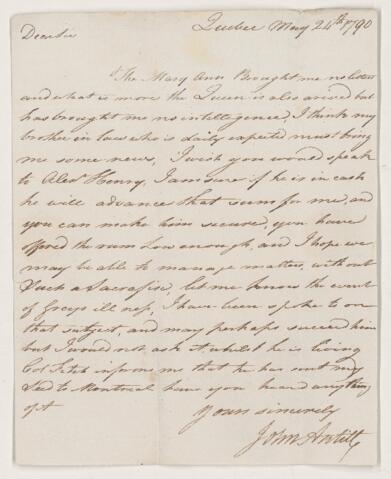 Quebec May 24th 1790
Dear Sir
The Mary Ann Brought me no letters
and what is more the Queen is also arived but
has brought me no intellegence, I think my
brother in law who is daily expected must bring
me some news, I wish you would speak
to Alexr Henry, I am sure if he is in cash
he will advance that sum for me, and
you can make him secure, you have
offered the rum low enough, and I hope we
may be able to manage matters, without
Such a Sacrafise, let me know the event
of Greys ill ness, I have been spoke to on
that subject, and may perhaps succeed him
but I would not ask it whilst he is living
Col informs me that he has sent my
to Montreal have you heard anything
of it
Yours sincerely
John Antill